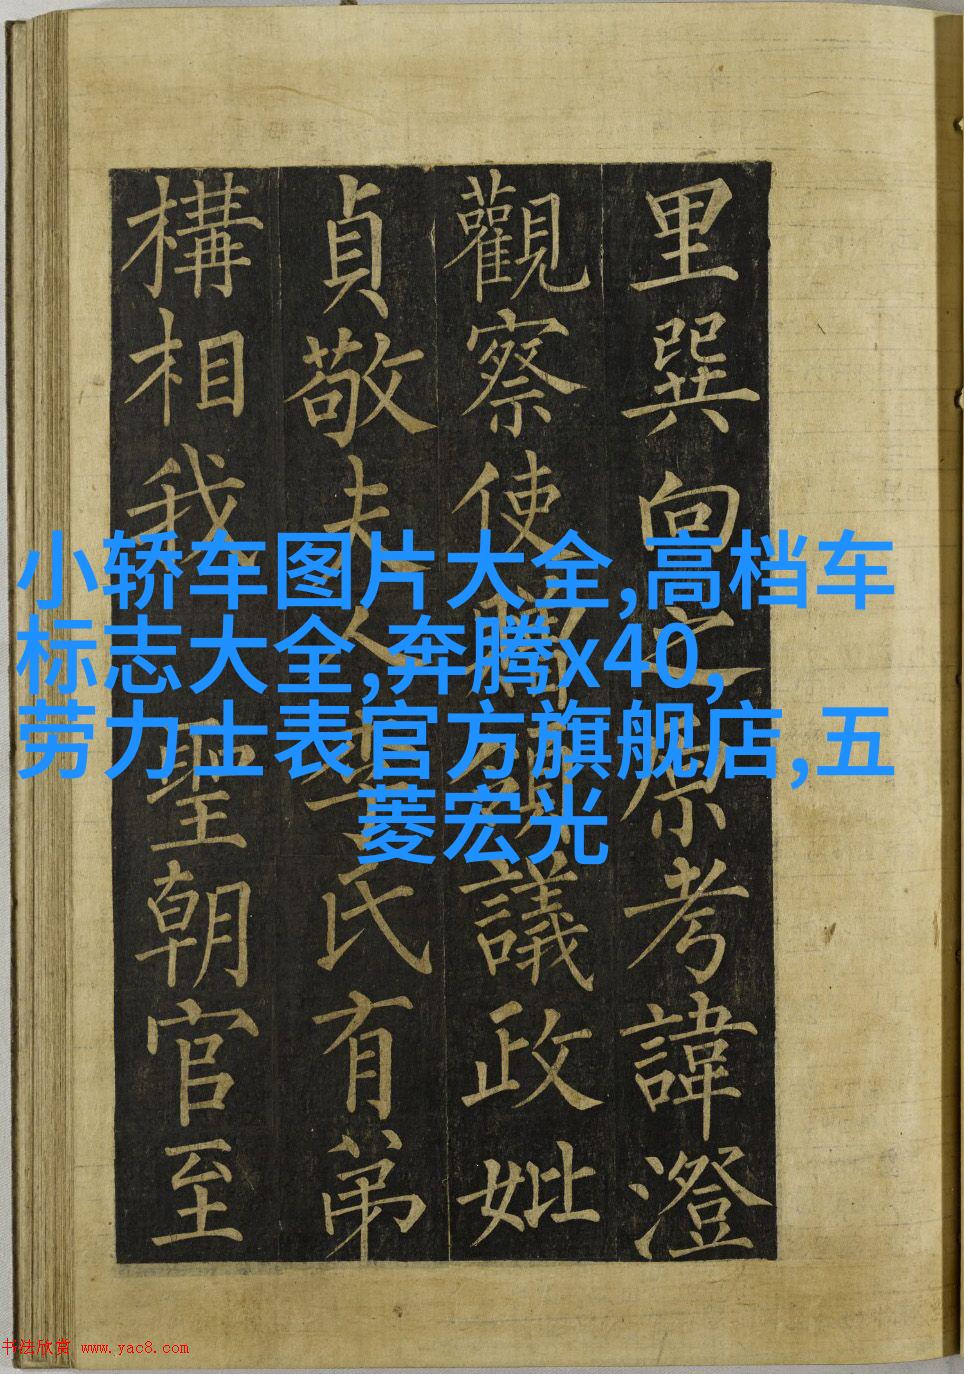 里巽向之原考諱澄
觀察使議政妣
貞敬夫人氏有弟
構相我聖朝官至
小轿车图片大全,高档车
标志大全,奔腾x40,
劳力士表官方旗舰店,五
菱宏光
书法欣赏 www.yac8.com